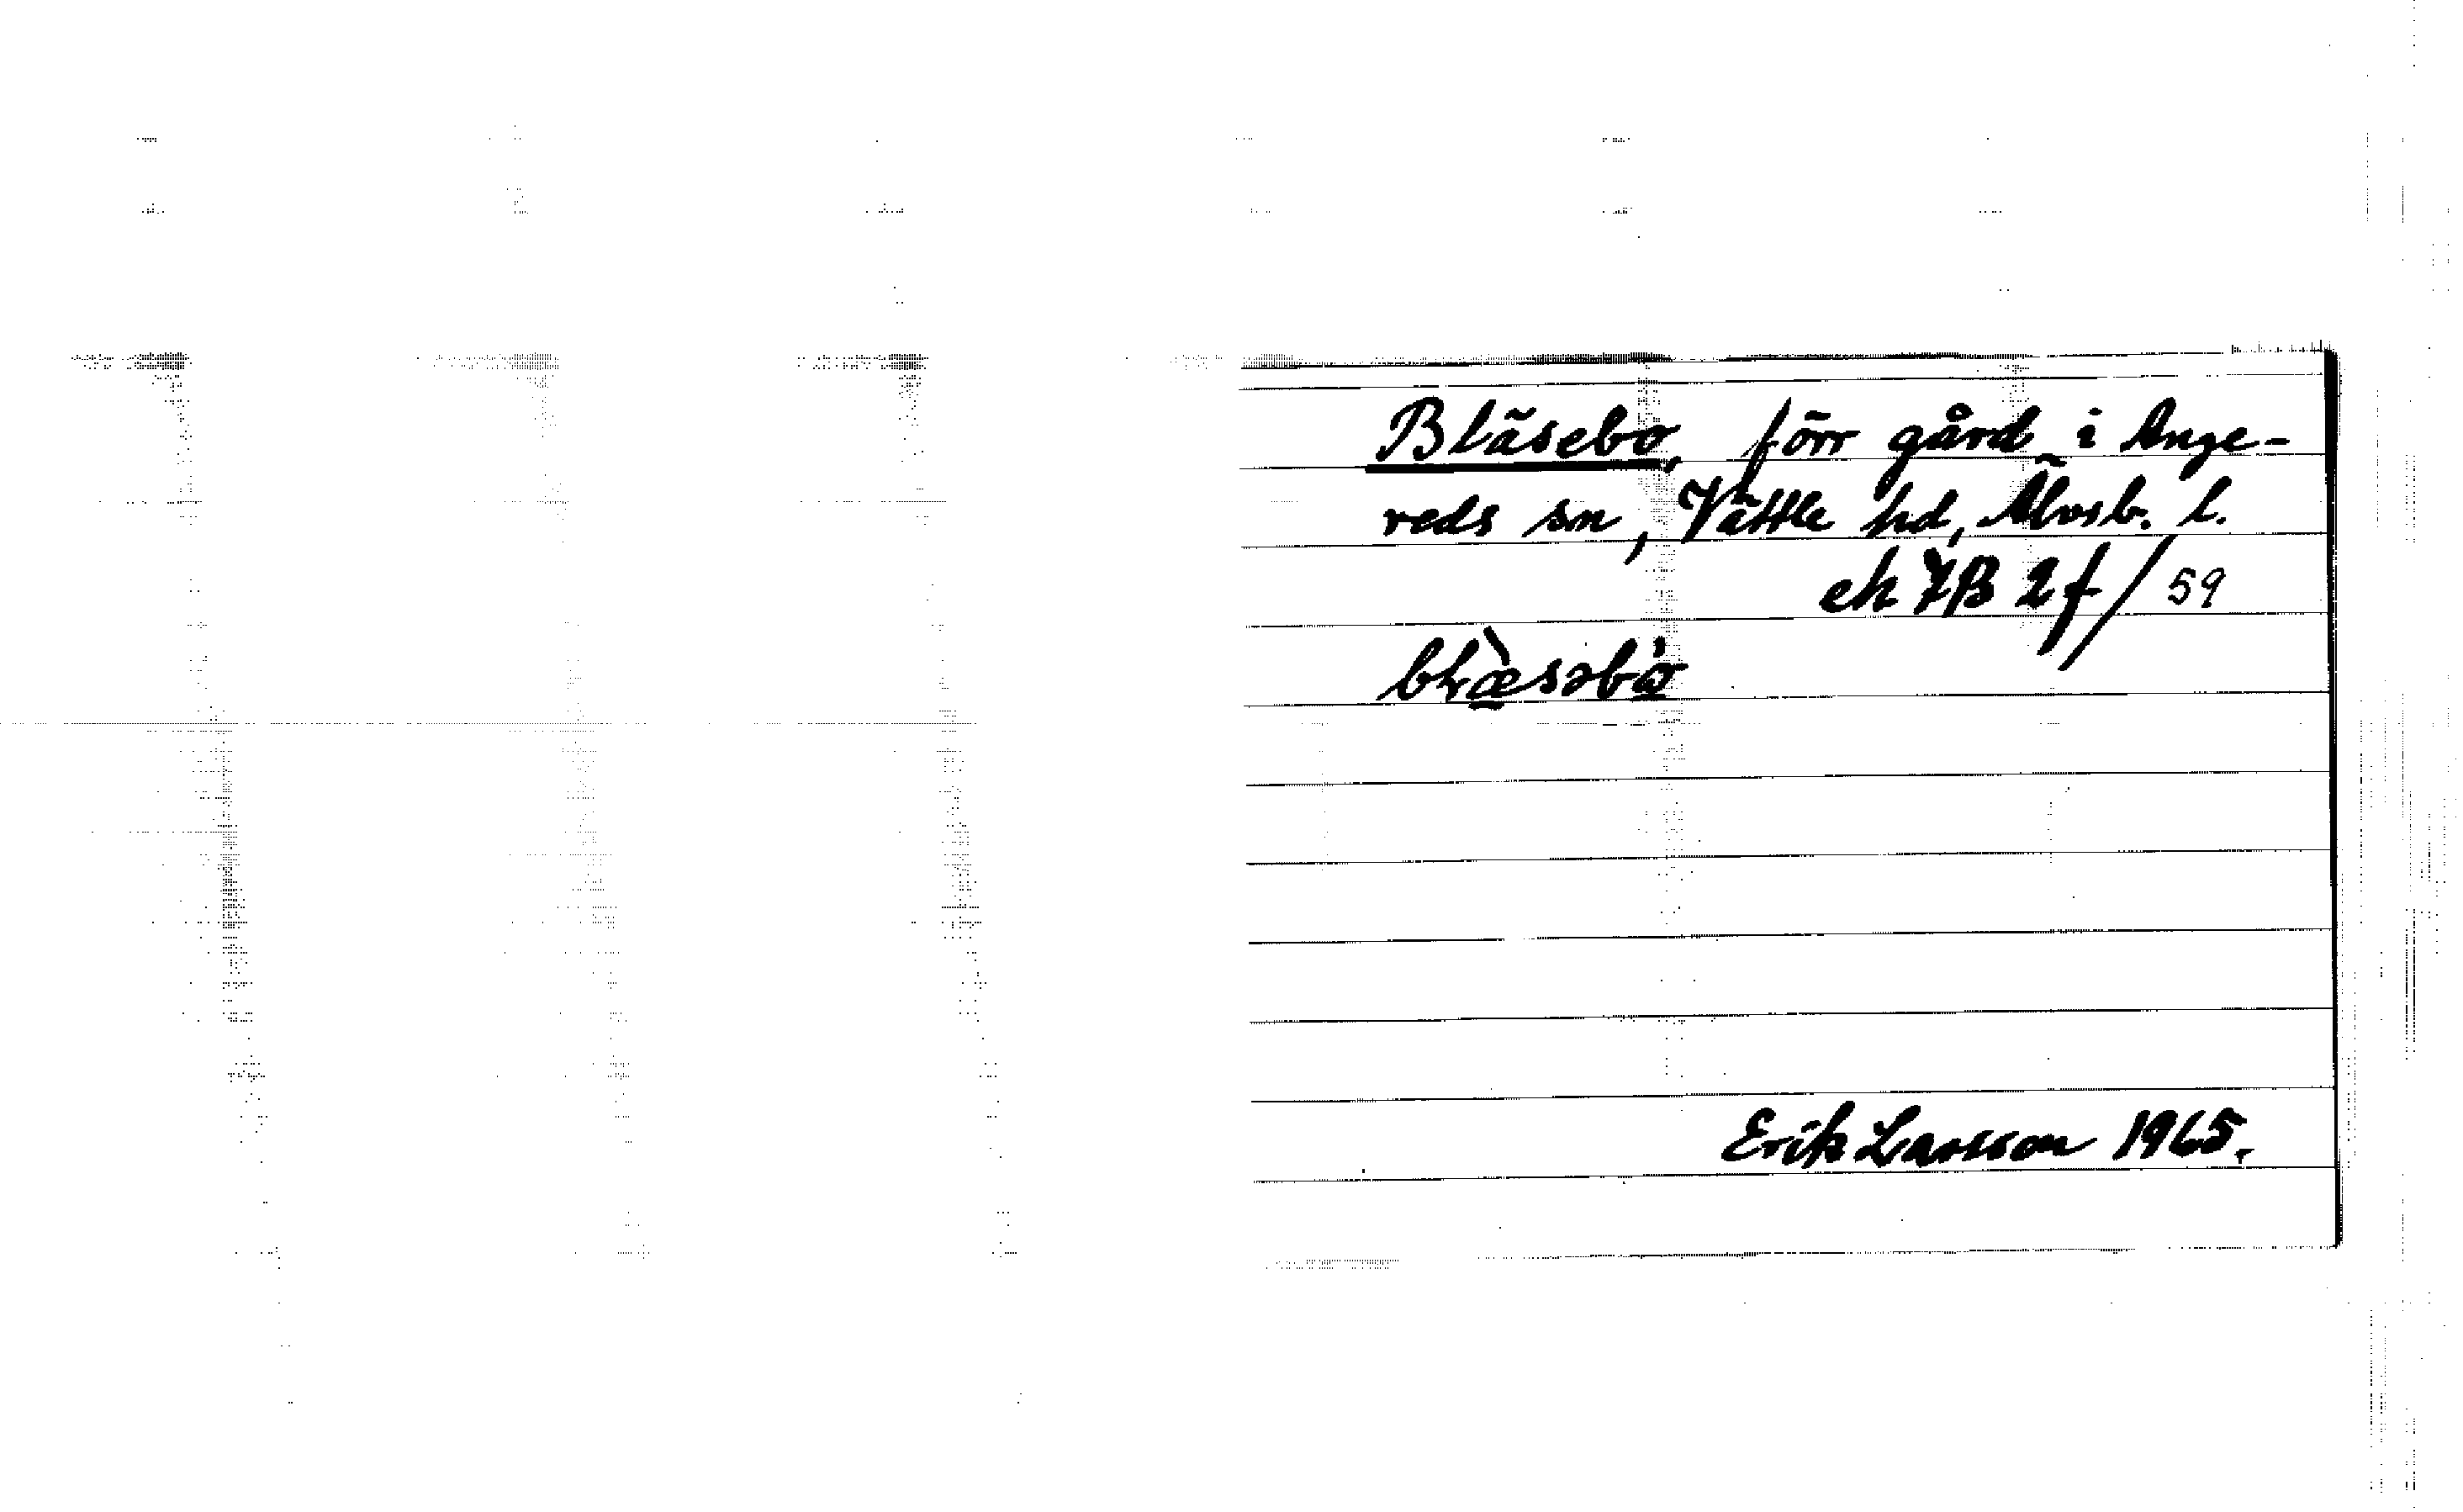 Bläsebo, förr gård i Ange-
reds sn, Vättle hd, Älvsb. l.
ek 7B 2f/59
bɫæ̀səbò
Erik Larsson 1965.